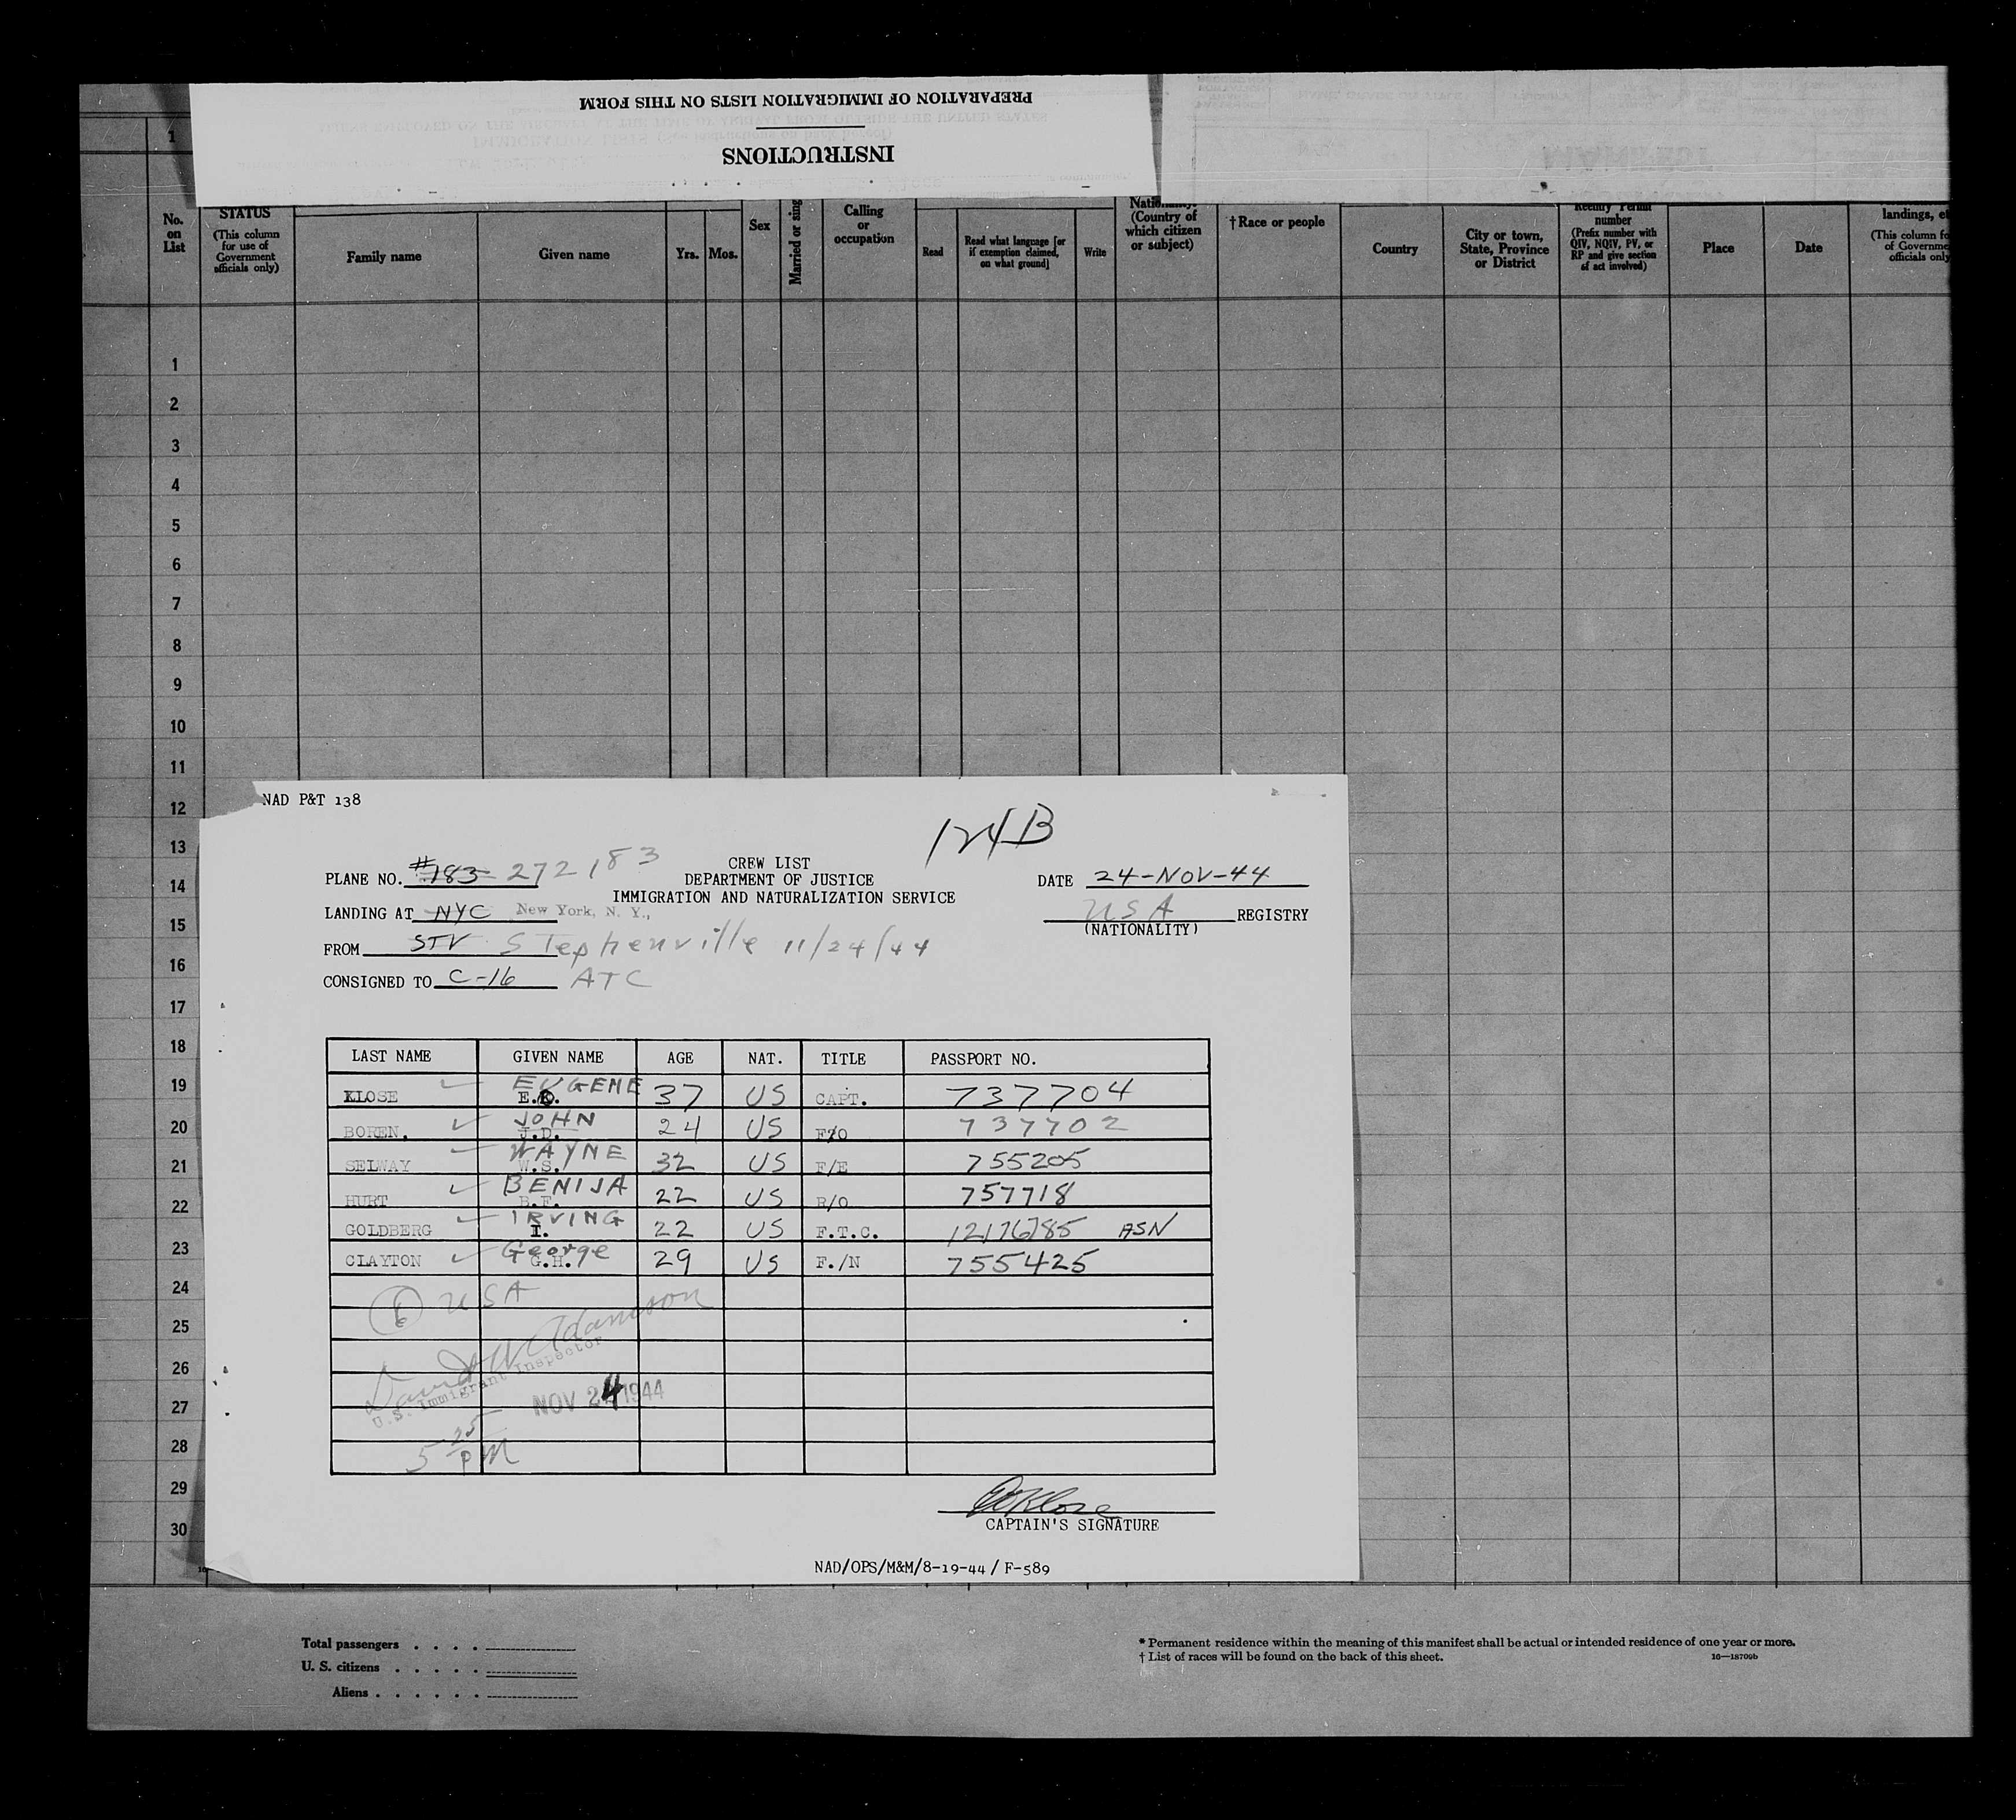 PREPARATION OF IMMIGRATION LISTS ON THIS FORM
INSTRUCTIONS
1
No. on List
STATUS
(This column for use of Government officials only)
Family name
Given name
Yrs.
Mos.
Sex
Married or sing
Calling or occupation
Read
Read what language [or if exemption claimed, on what ground]
Write
(Country of which citizen or subject)
† Race or people
Country
City or town, State, Province or District
number
(Prefix number with QIV, NQIV, PV, or RP and give section of act involved)
Place
Date
landings, et
(This column fo of Governme officials only
1
2
3
4
5
6
7
8
9
10
11
12
13
14
15
16
17
18
19
20
21
22
23
24
25
26
27
28
29
30
NAD P&T 138
124B
PLANE NO. #183 272183
CREW LIST
DEPARTMENT OF JUSTICE
IMMIGRATION AND NATURALIZATION SERVICE
DATE 24-NOV-44
LANDING AT NYC New York, N. Y.,
USA REGISTRY
(NATIONALITY)
FROM STV Stephenville 11/24/44
CONSIGNED TO C-16 ATC
LAST NAME GIVEN NAME AGE NAT. TITLE PASSPORT NO.
KLOSE EUGENE E.O. 37 US CAPT. 737704
BOREN, JOHN J.D. 24 US F/O 737702
SELWAY WAYNE W.S. 32 US F/E 755205
HURT BENIJA B.F. 22 US R/O 757718
GOLDBERG IRVING I. 22 US F.T.C. 12176785 ASN
CLAYTON George G.H. 29 US F./N 755425
6 USA
David W Adamson
U.S. Immigrant Inspector
NOV 24 1944
5 25 PM
EOKlose
CAPTAIN'S SIGNATURE
NAD/OPS/M&M/8-19-44/ F-589
Total passengers . . . .
U. S. citizens . . . . .
Aliens . . . . . .
* Permanent residence within the meaning of this manifest shall be actual or intended residence of one year or more.
† List of races will be found on the back of this sheet.
16—18709b